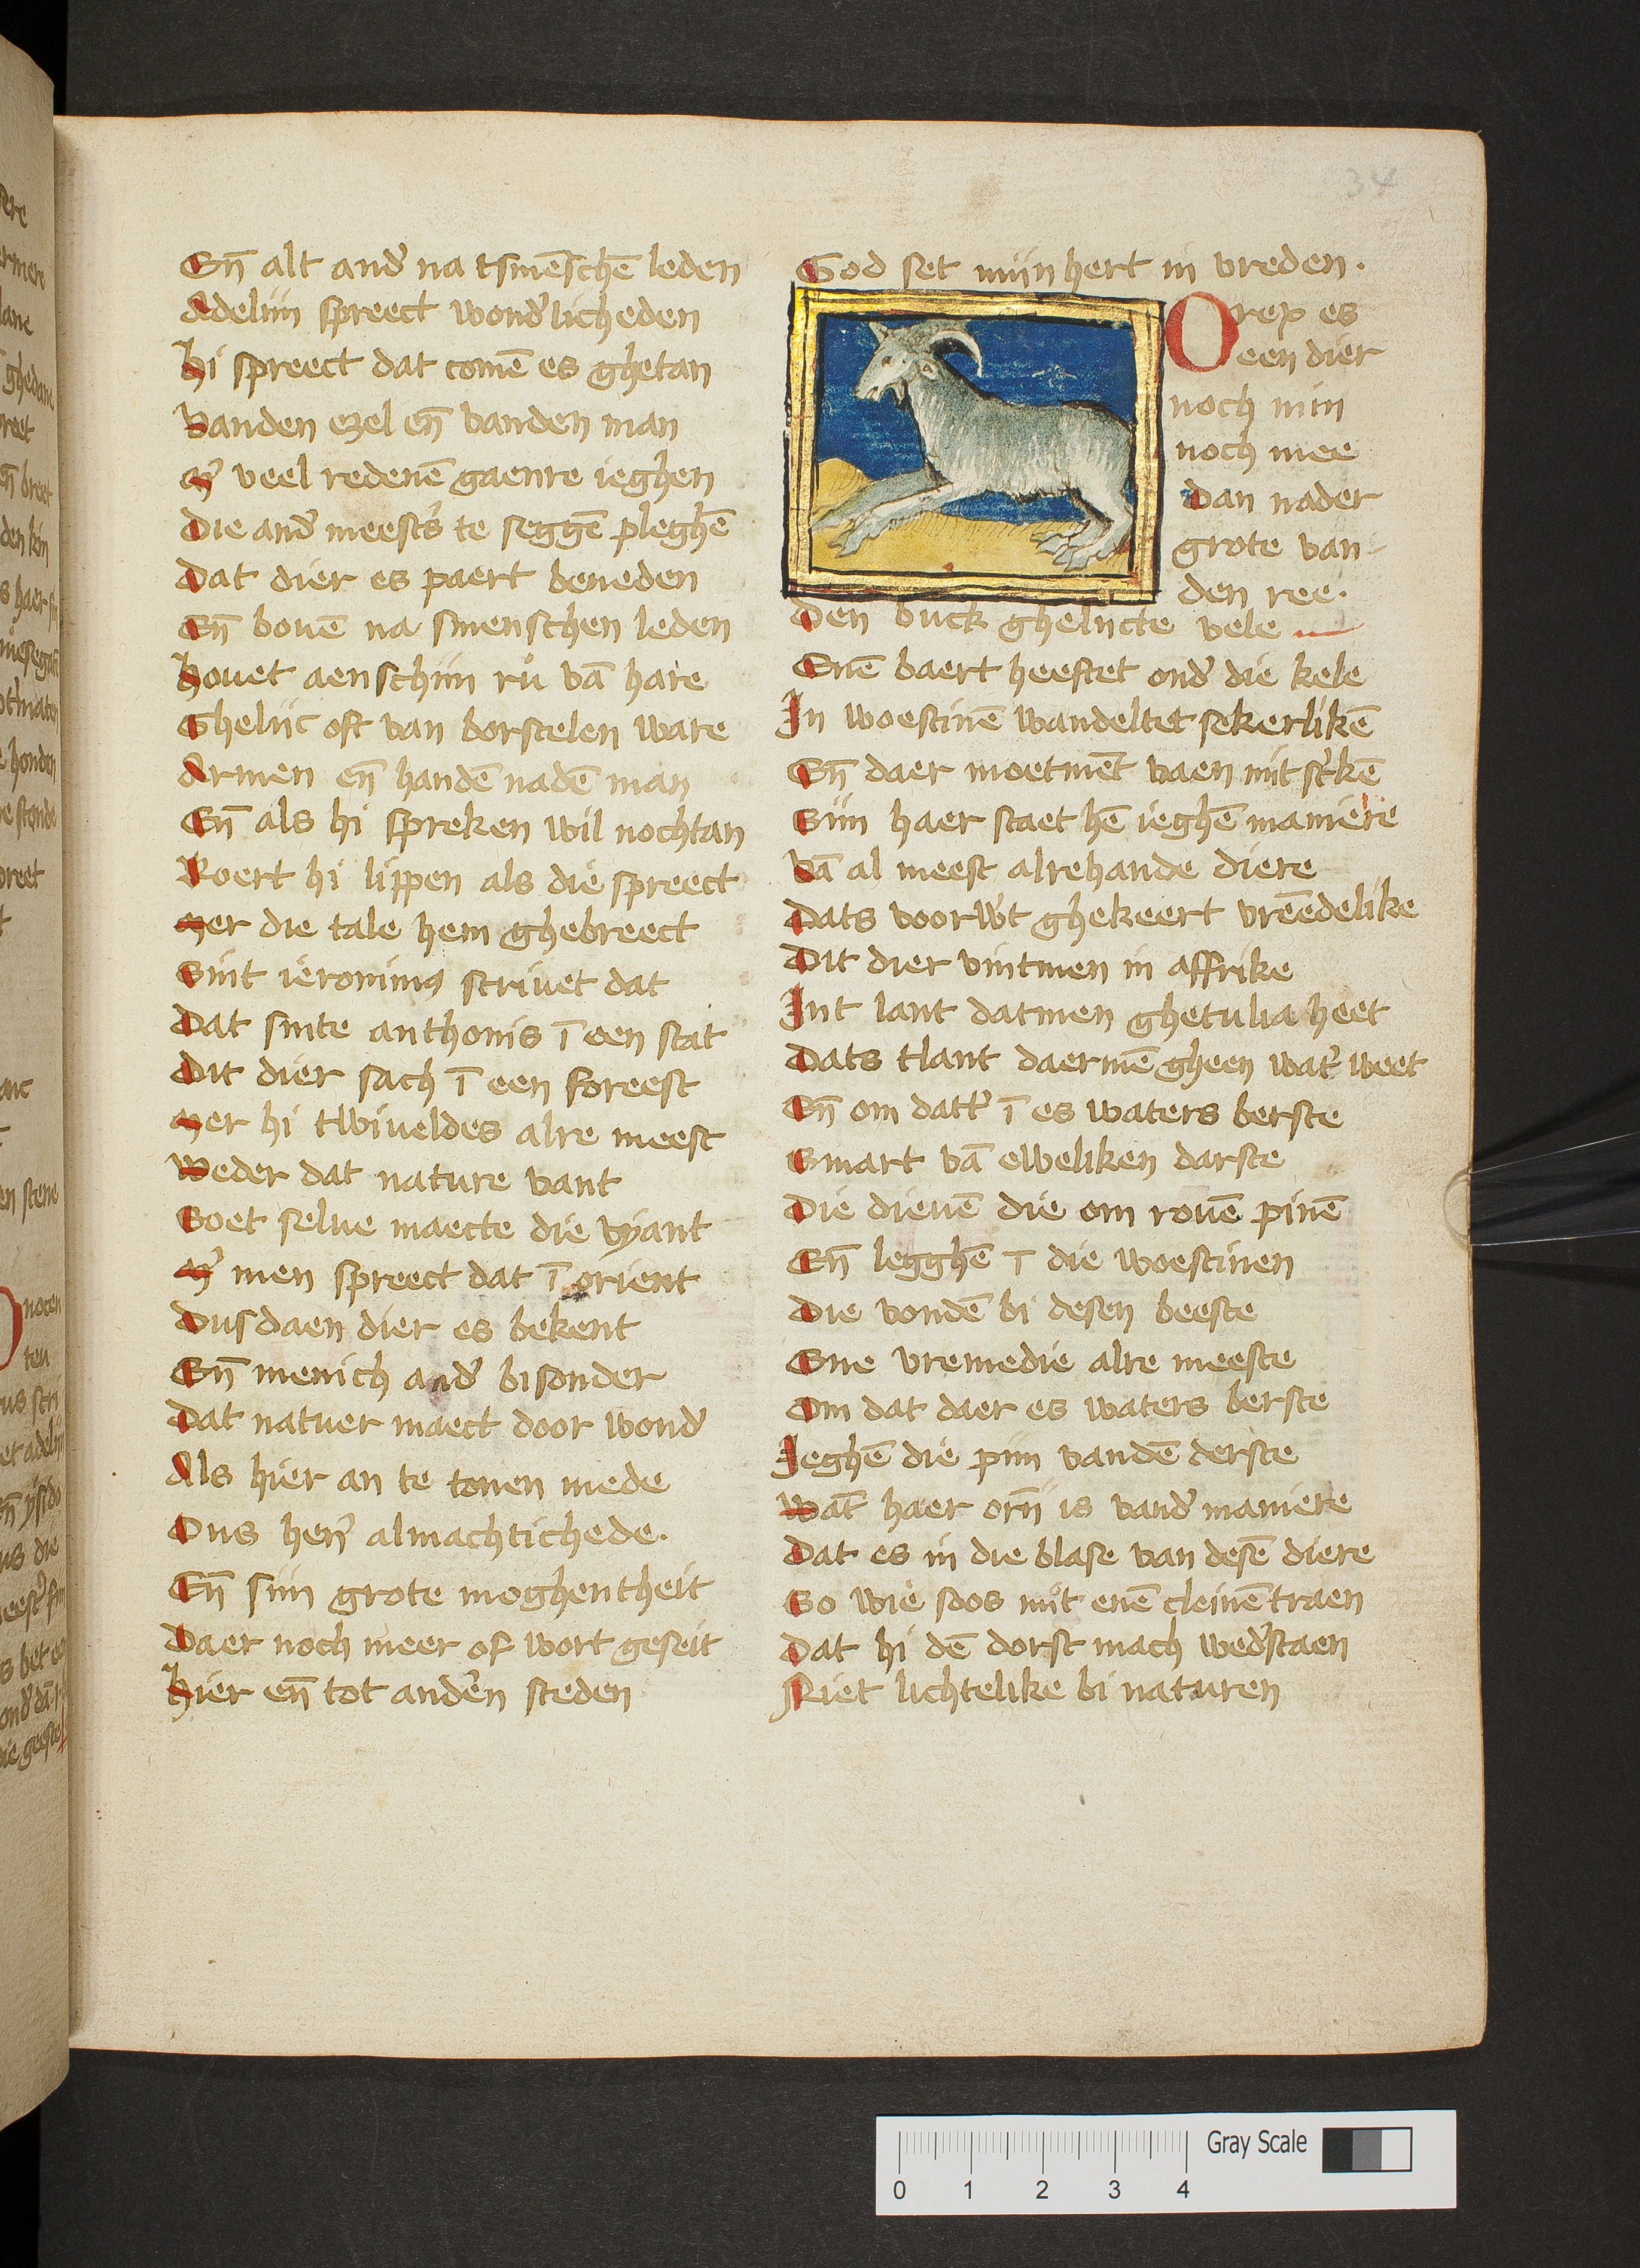 34
En̄ alt and' na tsmēschē leden
Adeliin spreect wond'licheden
Hi spreect dat comē es ghetan
Vanden ezel en̄ vanden man
M' veel redenē gaenre ieghen
Die and' meest's te seggē pleghē
Dat dier es paert beneden
En̄ bouē na smenschen leden
Houet aenschiin ru vā hare
Gheliic oft van borstelen ware
Armen en̄ handē nadē man
En̄ als hi spreken wil nochtan
Roert hi lippen als die spreect
Mer die tale hem ghebreect
Sint ieronimus scriuet dat
Dat sinte anthonis ī een stat
Dit dier sach ī een foreest
Mer hi twiueldes alre meest
Weder dat nature vant
Soet selue maecte die vyant
M' men spreect dat ī orient
Dusdaen dier es bekent
En̄ menich and' bisonder
Dat natuer maect door wond'
Als hier an te tonen mede
Ons her' almachtichede.
En̄ siin grote moghentheit
Daer noch meer of wort geseit
Hier en̄ tot and'en steden
God set miin hert in vreden.
Orex es
een dier
noch min
noch mee
Dan nader
grote van
den ree.
Den buck gheliicte vele
Enē baert heeftet ond' die kele
In woestinē wandeltet sekerlikē
En̄ daer moetmēt vaen mit st'kē
Siin haer staet hē ieghē maniere
Vā al meest alrehande diere
Dats voorw't ghekeert vrēedelike
Dit dier vintmen in affrike
Int lant datmen ghetulia heet
Dats tlant daermē gheen wat' weet
En̄ om datt' ī es waters berste
Smart vā eweliken darste
Die dieuē die om rouē pinē
En̄ legghē ī die woestinen
Die vondē bi desen beeste
Ene vremedie alre meeste
Om dat daer es waters berste
Ieghē die piin vandē derste
Wāt haer orn̄ is vand' maniere
Dat es in die blase van desē diere
So wie soos nut enē cleinē traen
Dat hi dē dorst mach wed'staen
Niet lichtelike bi naturen
Gray Scale
0 1 2 3 4